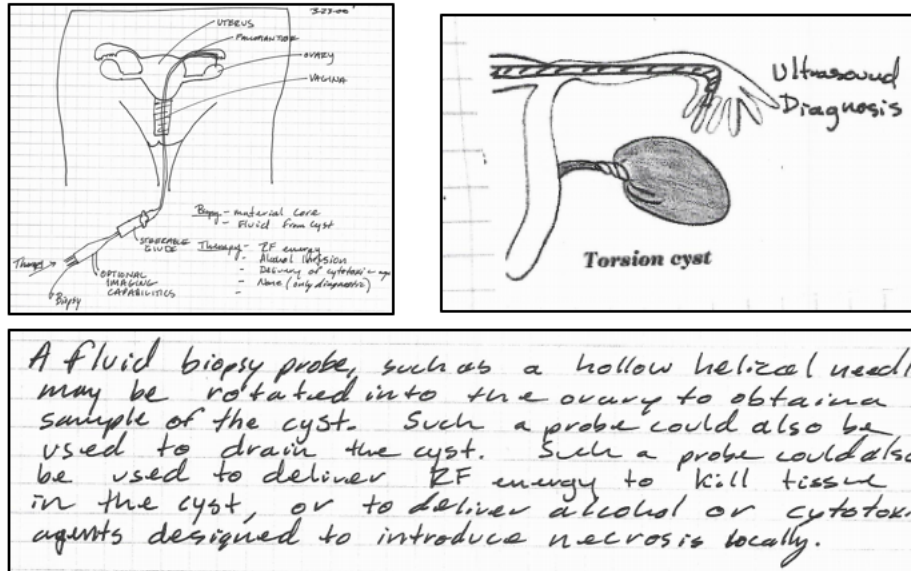 3-23-00
UTERUS
FALLOPIAN TUBE
OVARY
VAGINA
Biopsy - material core
- Fluid from cyst
STEERABLE
GUIDE
Therapy - RF energy
- Alcohol Infusion
- Delivery of cytotoxic ag
- None (only diagnostic)
-
Therapy
OPTIONAL
IMAGING
CAPABILITIES
Biopsy
Ultrasound
Diagnosis
Torsion cyst
A fluid biopsy probe, such as a hollow helical needl
may be rotated into the ovary to obtain a
sample of the cyst. Such a probe could also be
used to drain the cyst. Such a probe could also
be used to deliver RF energy to kill tissue
in the cyst, or to deliver alcohol or cytotoxi
agents designed to introduce necrosis locally.